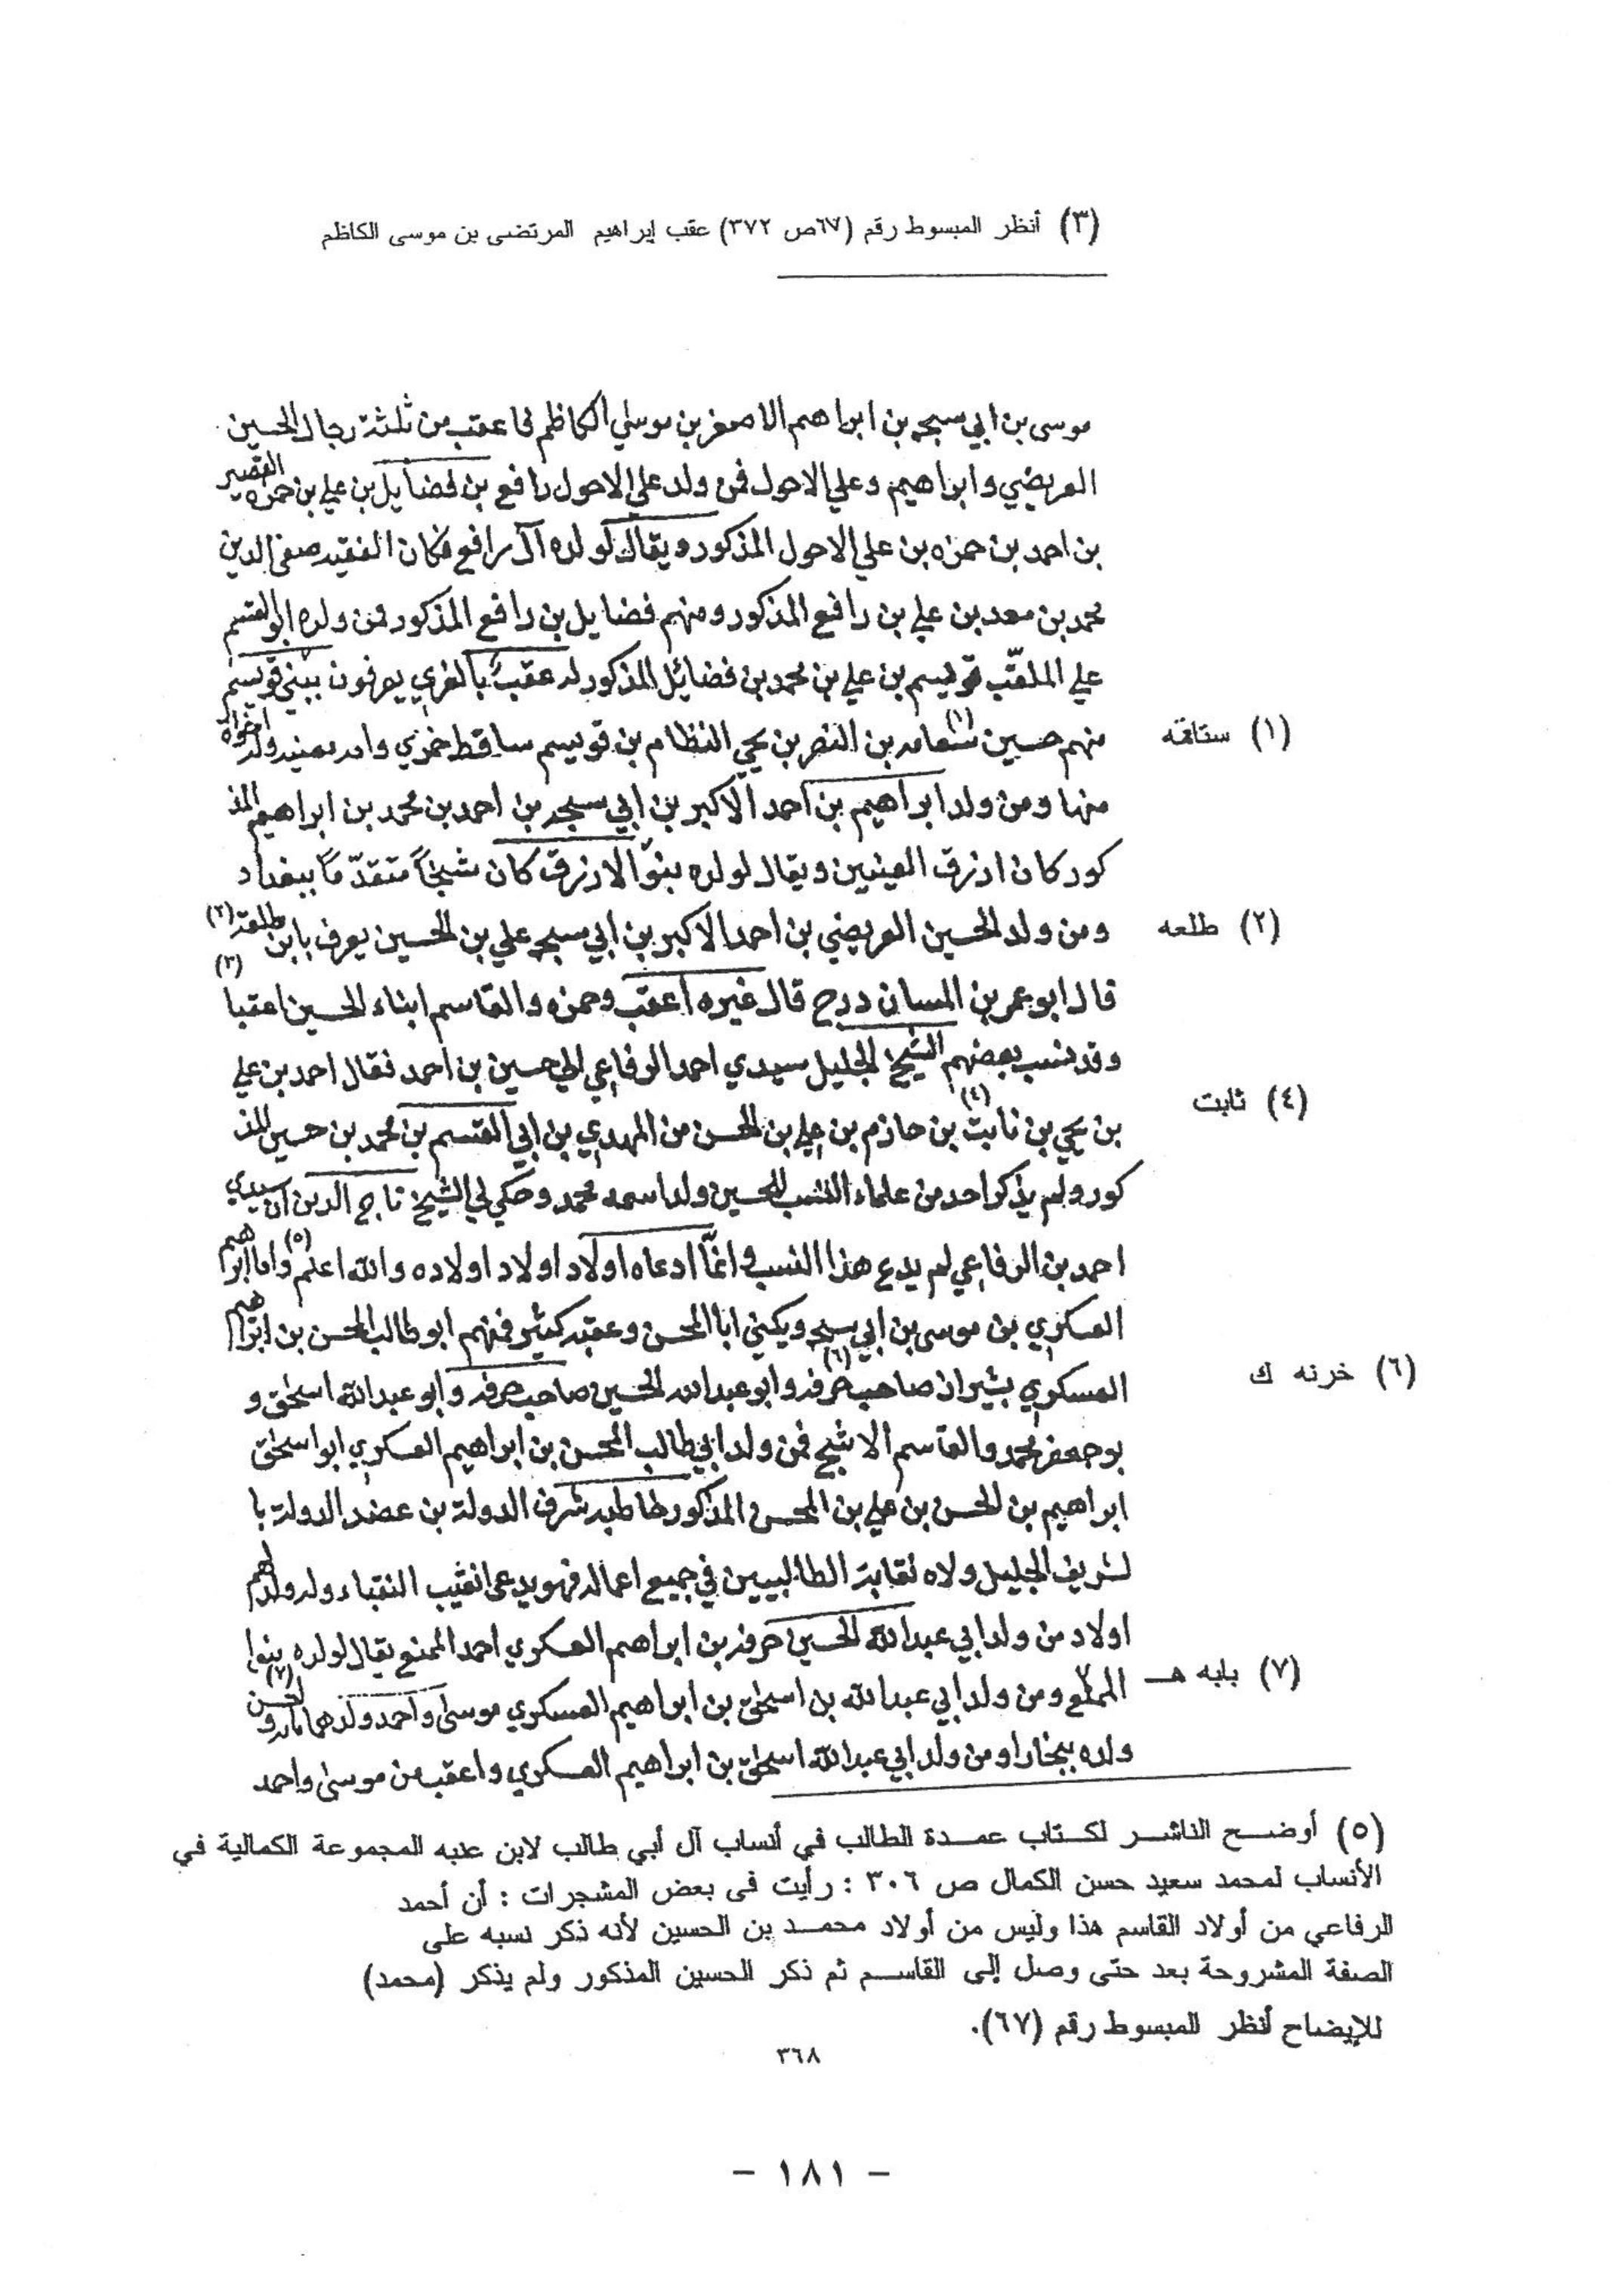 (٣) أنظر المبسوط رقم (٦٧ص ٣٧٢) عقب إبراهيم المرتضى بن موسى الكاظم
موسى بن ابي سبحه بن ابراهيم الاصغر بن موسى الكاظم فاعقب من ثلثة رجال الحسين
العريضي وابراهيم وعلي الاحول فمن ولد علي الاحول رافع بن فضايل بن علي بن حمزه القصير
بن احمد بن حمزه بن علي الاحول المذكور ويقال لولده آل رافع فكان الفقيه صفي الدين
محمد بن معد بن علي بن رافع المذكور ومنهم فضايل بن رافع المذكور فمن ولده ابو القسم
علي الملقّب قويسم بن علي بن محمد بن فضائل المذكور له عقب بالغري يعرفون ببني قويسم
منهم حسين بن النصر بن يحي النظام بن قويسم ساقط خمري وامه مغنيه ولد اخواه
(١) ستاقه
منها ومن ولد ابراهيم بن احمد الاكبر بن ابي سبحه بن احمد بن محمد بن ابراهيم المذ
كور كان ازرق العينين ويقال لولده بنو الازرق كان شيخاً متقدّماً ببغداد
ومن ولد الحسين العريضي بن احمد الاكبر بن ابي سبحه علي بن الحسين يعرف بابن طلعة (٢)
(٢) طلعه
قال ابو عمر بن المسان درج قال غيره اعقب وحمزه والقاسم ابناء الحسين اعقبا (٣)
وقد نسب بعضهم الشيخ الجليل سيدي احمد الرفاعي الي حسين بن احمد فقال احمد بن علي
بن يحي بن نابت (٤) بن حازم بن علي بن الحسن من المهدي بن ابي القسم بن محمد بن حسين المذ
(٤) ثابت
كور ولم يذكر احد من علماء النسب للحسين ولدا سمه محمد وحكي لي الشيخ تاج الدين ان سيدي
احمد بن الرفاعي لم يدع هذا النسب وانمّا ادعاه اولاد اولاد اولاده والله اعلم (٥) واما ابراهيم
العسكري بن موسى بن ابي سبحه ويكني ابا المحسن وعقبه كثير فمنهم ابو طالب المحسن بن ابراهيم
العسكري بشيراز صاحب (٦) وابو عبد الله الحسين صاحب وابو عبد الله اسحق و
(٦) خرنه ك
بو جعفر محمد والقاسم الاشج فمن ولد ابي طالب المحسن بن ابراهيم العسكري ابو اسحق
ابراهيم بن الحسن بن علي بن المحسن المذكور خاطبه شرف الدولة بن عضد الدولة با
لشريف الجليل ولاه نقابة الطالبيين في جميع اعماله فهو يدعى نقيب النقباء وله ولدهم
اولاد من ولد ابي عبد الله الحسين بن ابراهيم العسكري احمد الممنع يقال لولده بنوا
ومن ولد ابي عبد الله بن اسحق بن ابراهيم العسكري موسى واحمد ولدهما (٧)
(٧) بابه هـ
ولده ببخارا ومن ولد ابي عبد الله اسحق بن ابراهيم العسكري واعقب من موسى واحمد
(٥) أوضح الناشر لكتاب عمدة الطالب في أنساب آل أبي طالب لابن عنبه المجموعة الكمالية في
الأنساب لمحمد سعيد حسن الكمال ص ٣٠٦ : رأيت فى بعض المشجرات : أن أحمد
الرفاعي من أولاد القاسم هذا وليس من أولاد محمد بن الحسين لأنه ذكر نسبه على
الصفة المشروحة بعد حتى وصل إلى القاسم ثم ذكر الحسين المذكور ولم يذكر (محمد)
للإيضاح أنظر المبسوط رقم (٦٧).
٣٦٨
- ١٨١ -